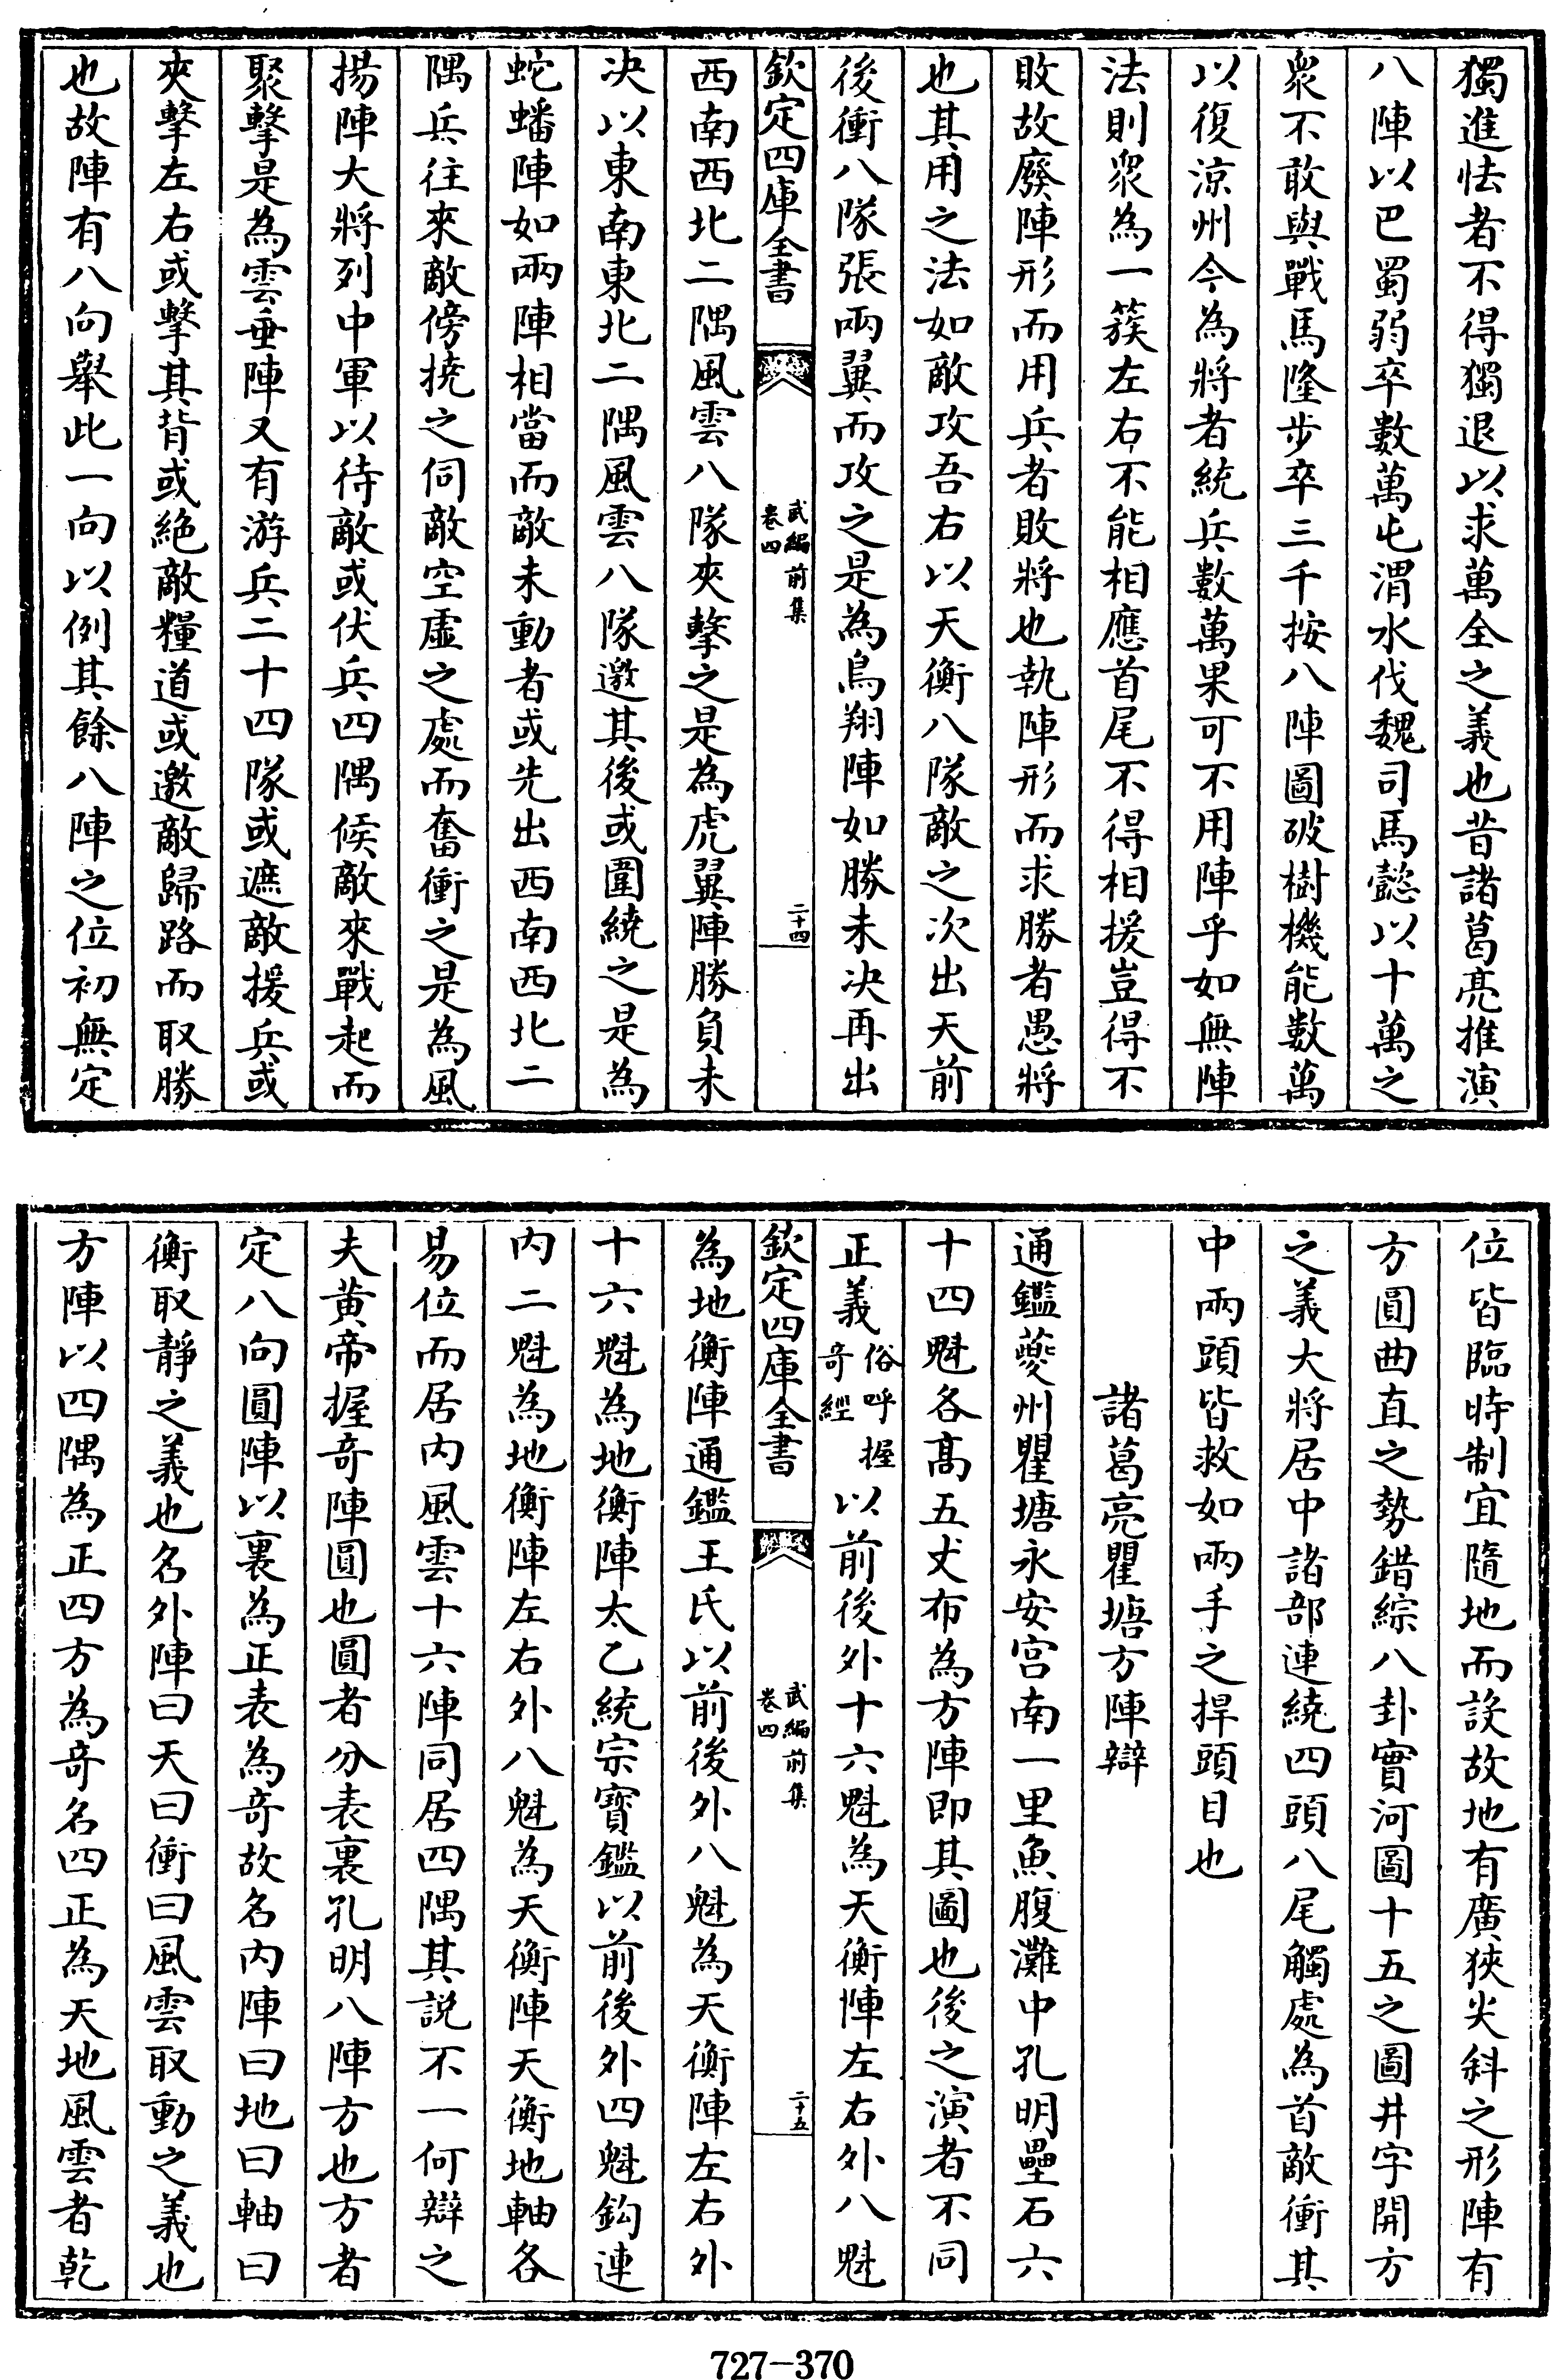 獨進怯者不得獨退以求萬全之義也昔諸葛亮推演
八陣以巴蜀弱卒數萬屯渭水伐魏司馬懿以十萬之
衆不敢與戰馬隆步卒三千按八陣圖破樹機能數萬
以復涼州今為將者統兵數萬果可不用陣乎如無陣
法則衆為一簇左右不能相應首尾不得相援豈得不
敗故廢陣形而用兵者敗將也執陣形而求勝者愚將
也其用之法如敵攻吾右以天衡八隊敵之次出天前
後衝八隊張兩翼而攻之是為鳥翔陣如勝未决再出
欽定四庫全書
武編前集
卷四
二十四
西南西北二隅風雲八隊夾擊之是為虎翼陣勝負未
决以東南東北二隅風雲八隊邀其後或圍繞之是為
蛇蟠陣如兩陣相當而敵未動者或先出西南西北二
隅兵往來敵傍撓之伺敵空虛之處而奮衝之是為風
揚陣大將列中軍以待敵或伏兵四隅候敵來戰起而
聚擊是為雲垂陣又有游兵二十四隊或遮敵援兵或
夾擊左右或擊其背或絶敵糧道或邀敵歸路而取勝
也故陣有八向舉此一向以例其餘八陣之位初無定
位皆臨時制宜隨地而設故地有廣狹尖斜之形陣有
方圓曲直之勢錯綜八卦實河圖十五之圖井字開方
之義大將居中諸部連繞四頭八尾觸處為首敵衝其
中兩頭皆救如兩手之捍頭目也
諸葛亮瞿塘方陣辯
通鑑夔州瞿塘永安宫南一里魚腹灘中孔明壘石六
十四魁各髙五丈布為方陣即其圖也後之演者不同
正義俗呼握奇經以前後外十六魁為天衡陣左右外八魁
欽定四庫全書
武編前集
卷四
二十五
為地衡陣通鑑王氏以前後外八魁為天衡陣左右外
十六魁為地衡陣太乙統宗寳鑑以前後外四魁鈎連
内二魁為地衡陣左右外八魁為天衡陣天衡地軸各
易位而居内風雲十六陣同居四隅其説不一何辯之
夫黄帝握奇陣圓也圓者分表裏孔明八陣方也方者
定八向圓陣以裏為正表為奇故名内陣曰地曰軸曰
衡取靜之義也名外陣曰天曰衝曰風雲取動之義也
方陣以四隅為正四方為奇名四正為天地風雲者乾
727-370